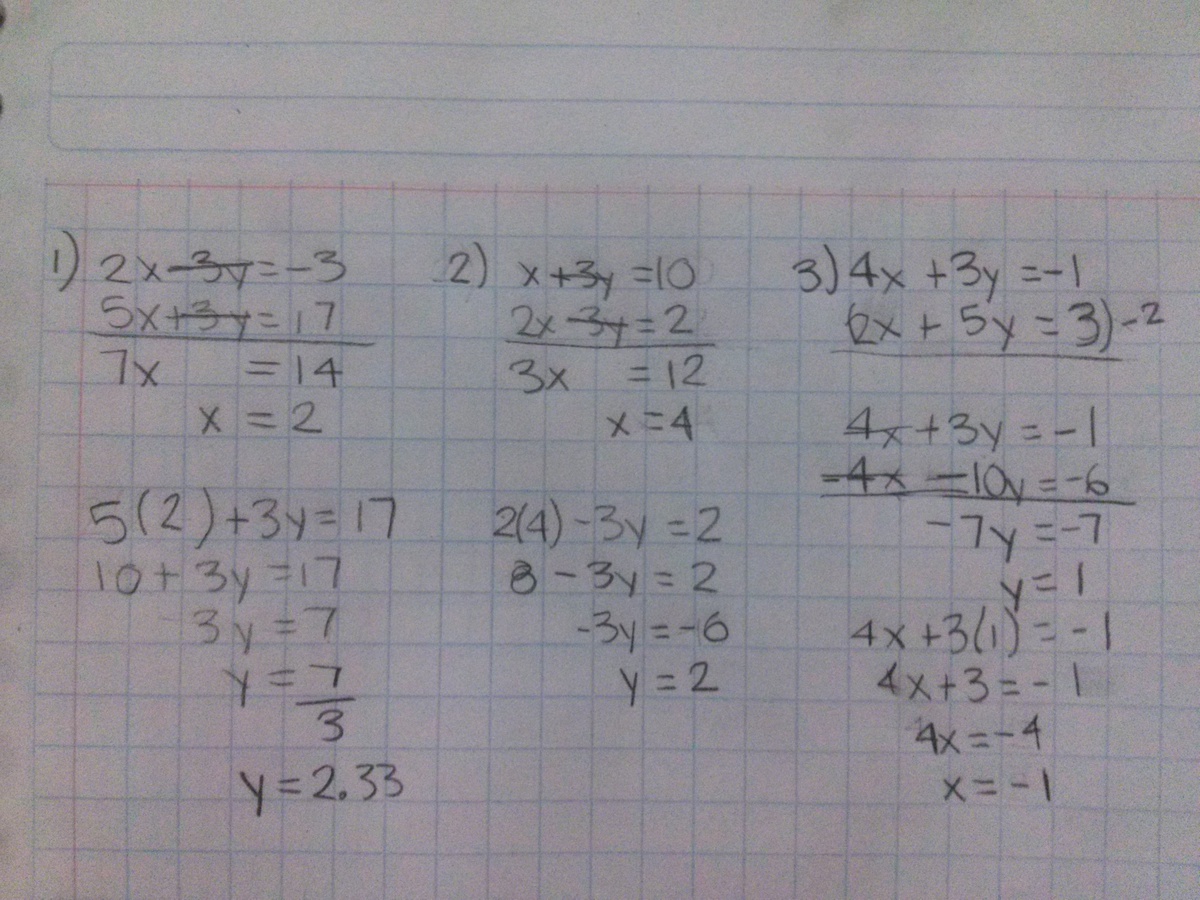 1) 2x-3y=-3
5x+3y=17
7x =14
x =2
5(2)+3y=17
10+3y=17
3y=7
y=7/3
y=2.33
2) x+3y=10
2x-3y=2
3x =12
x=4
2(4)-3y=2
8-3y=2
-3y=-6
y=2
3) 4x+3y=-1
(2x+5y=3)-2
4x+3y=-1
-4x-10y=-6
-7y=-7
y=1
4x+3(1)=-1
4x+3=-1
4x=-4
x=-1